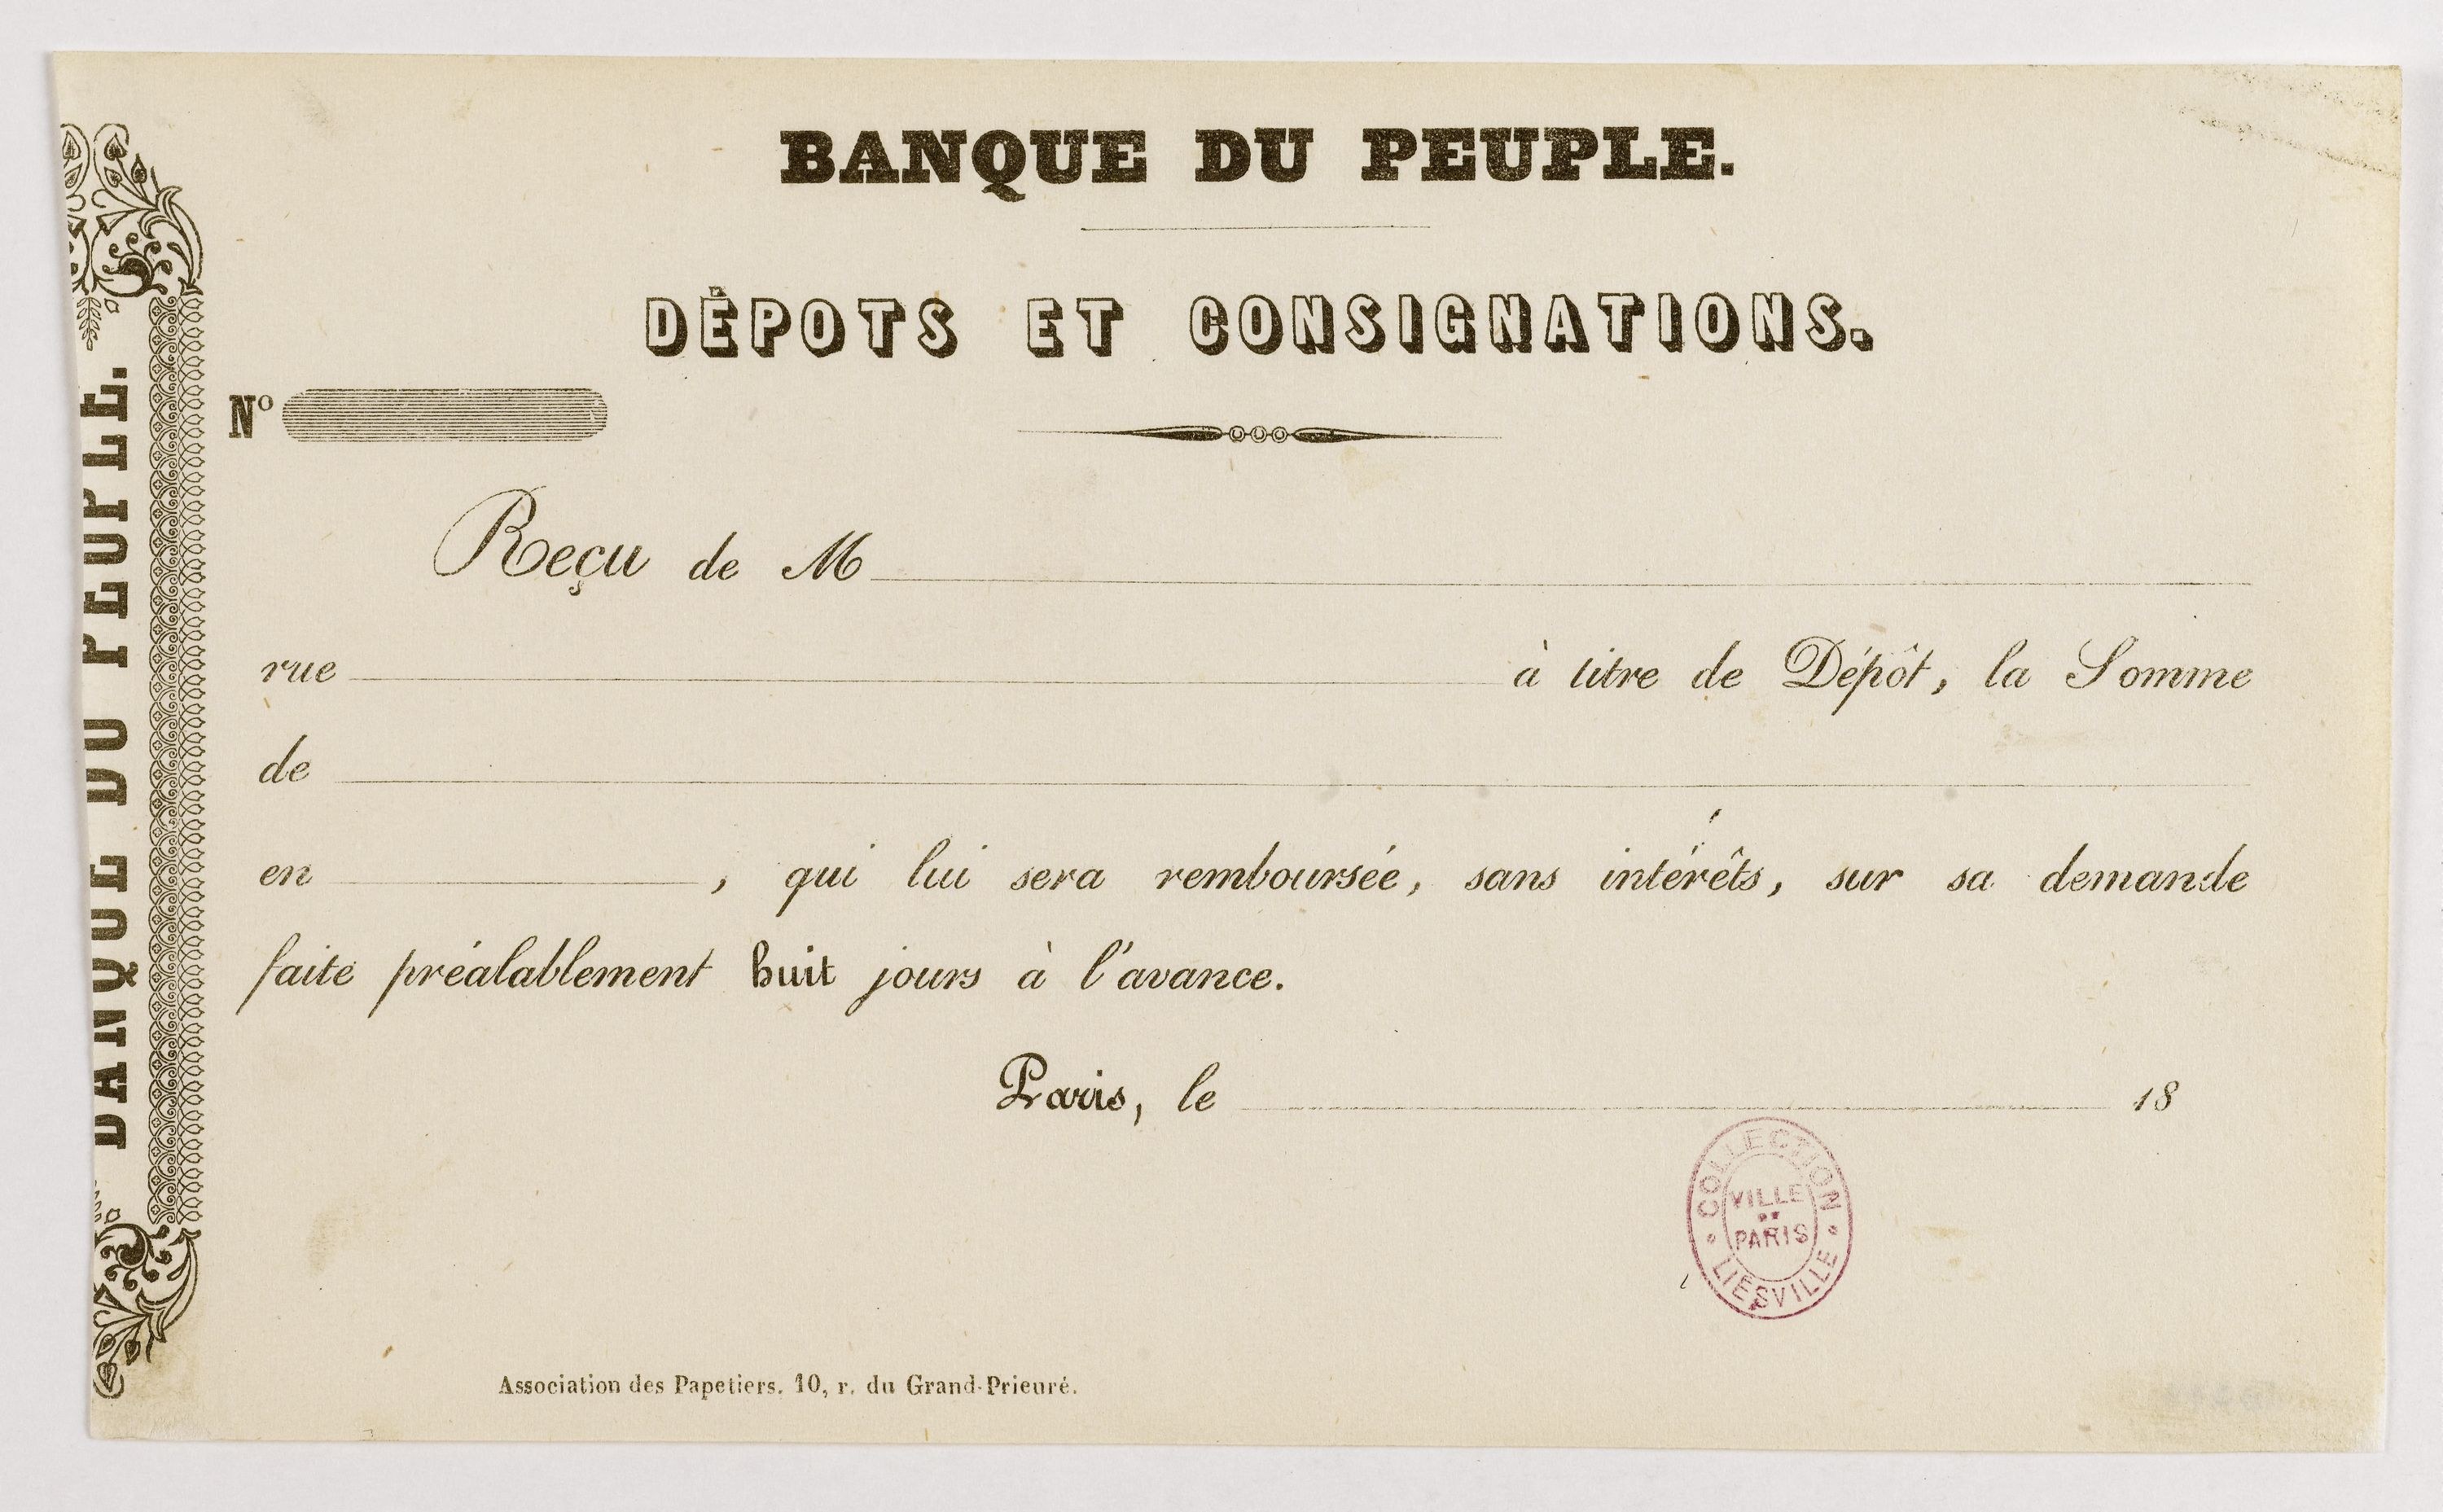 BANQUE DU PEUPLE.
DÉPOTS ET CONSIGNATIONS.
No
Reçu de M
rue à titre de Dépôt, la Somme
de
en , qui lui sera remboursée, sans intérêts, sur sa demande
faite préalablement huit jours à l'avance.
Paris, le 18
COLLECTION
VILLE
DE
PARIS
LIESVILLE
Association des Papetiers. 10, r. du Grand-Prieuré.
BANQUE DU PEUPLE.